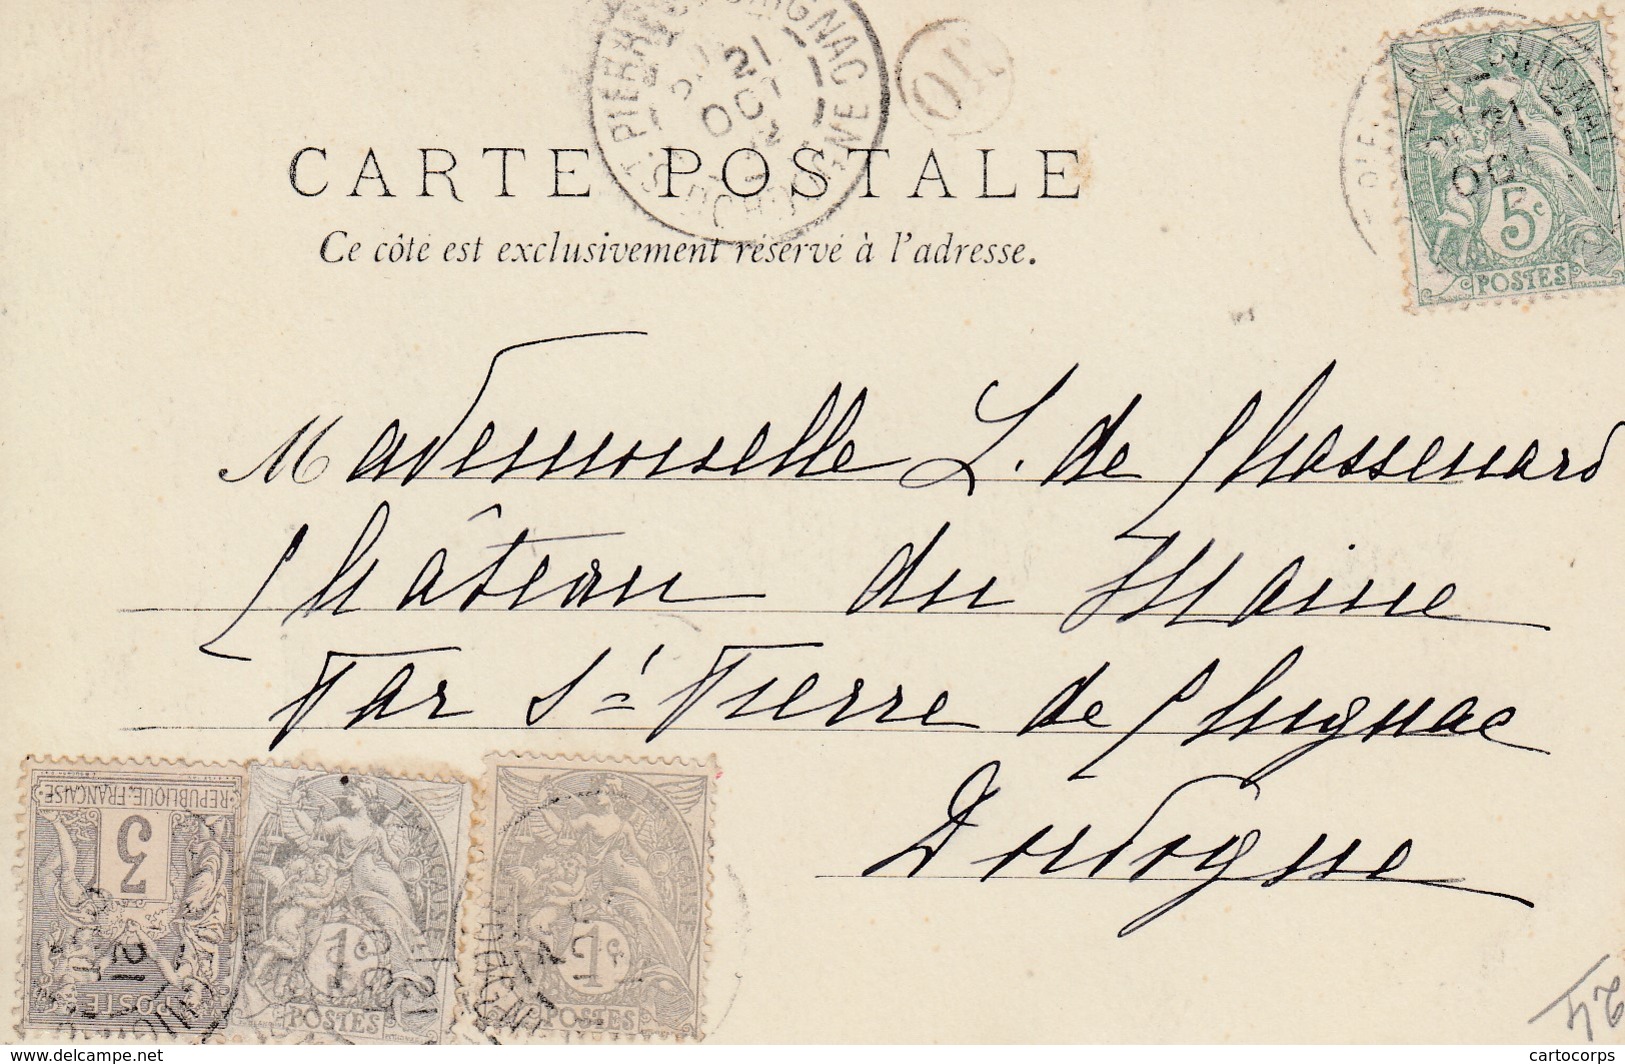 CARTE POSTALE
Ce côté est exclusivement réservé à l'adresse.
OR
21
OCT
5c
POSTES
Mademoiselle L. de Chassenard
Château du Maine
Par St Pierre de Chignac
Dordogne
REPUBLIQUE FRANCAISE
3
POSTE
1c
POSTES
1c
POSTES
24
cartocorps
www.delcampe.net